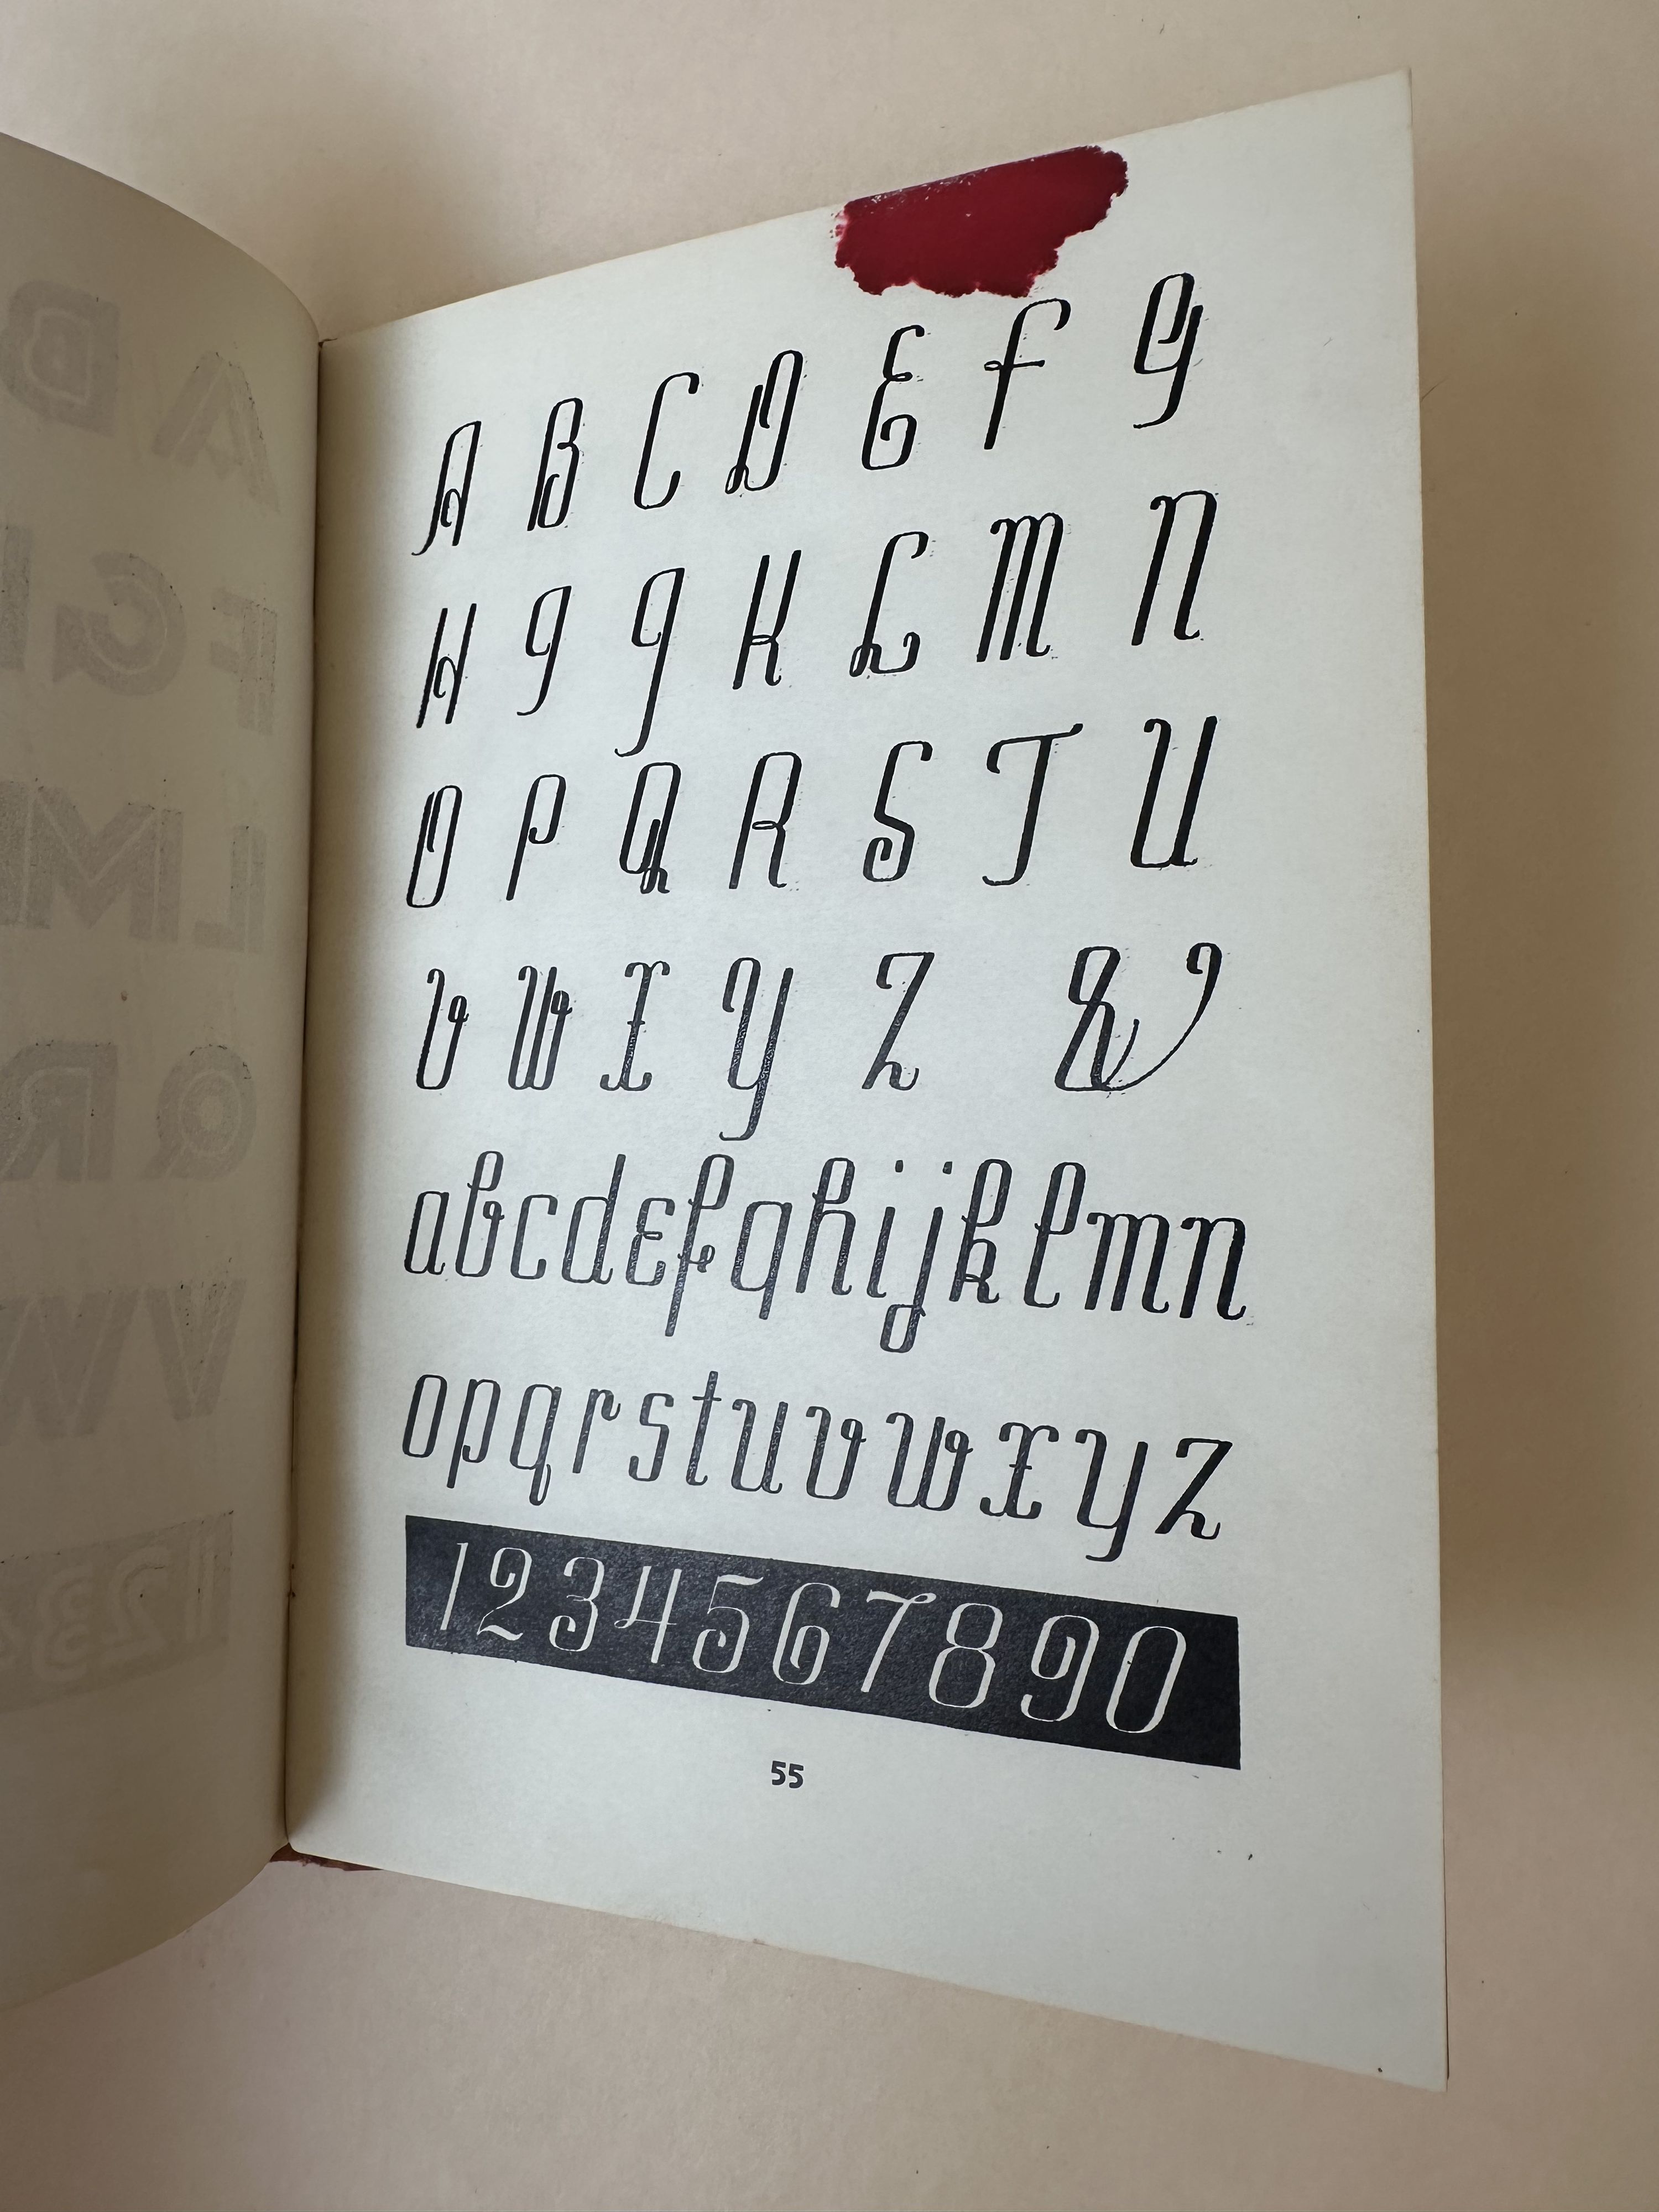 A B C D E F G
H I J K L M N
O P Q R S T U
V W X Y Z &
abcdefghijklmn
opqrstuvwxyz
1234567890
55